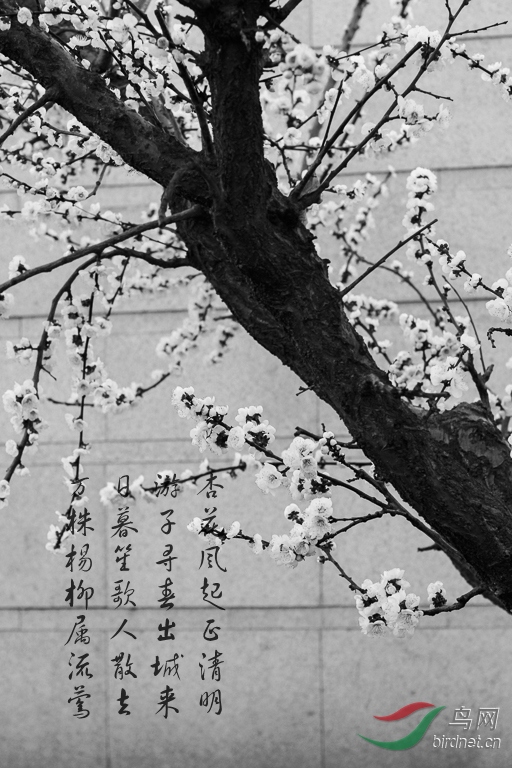 杏花风起正清明
游子寻春出城来
日暮笙歌人散去
万株杨柳属流莺
鸟网
birdnet.cn